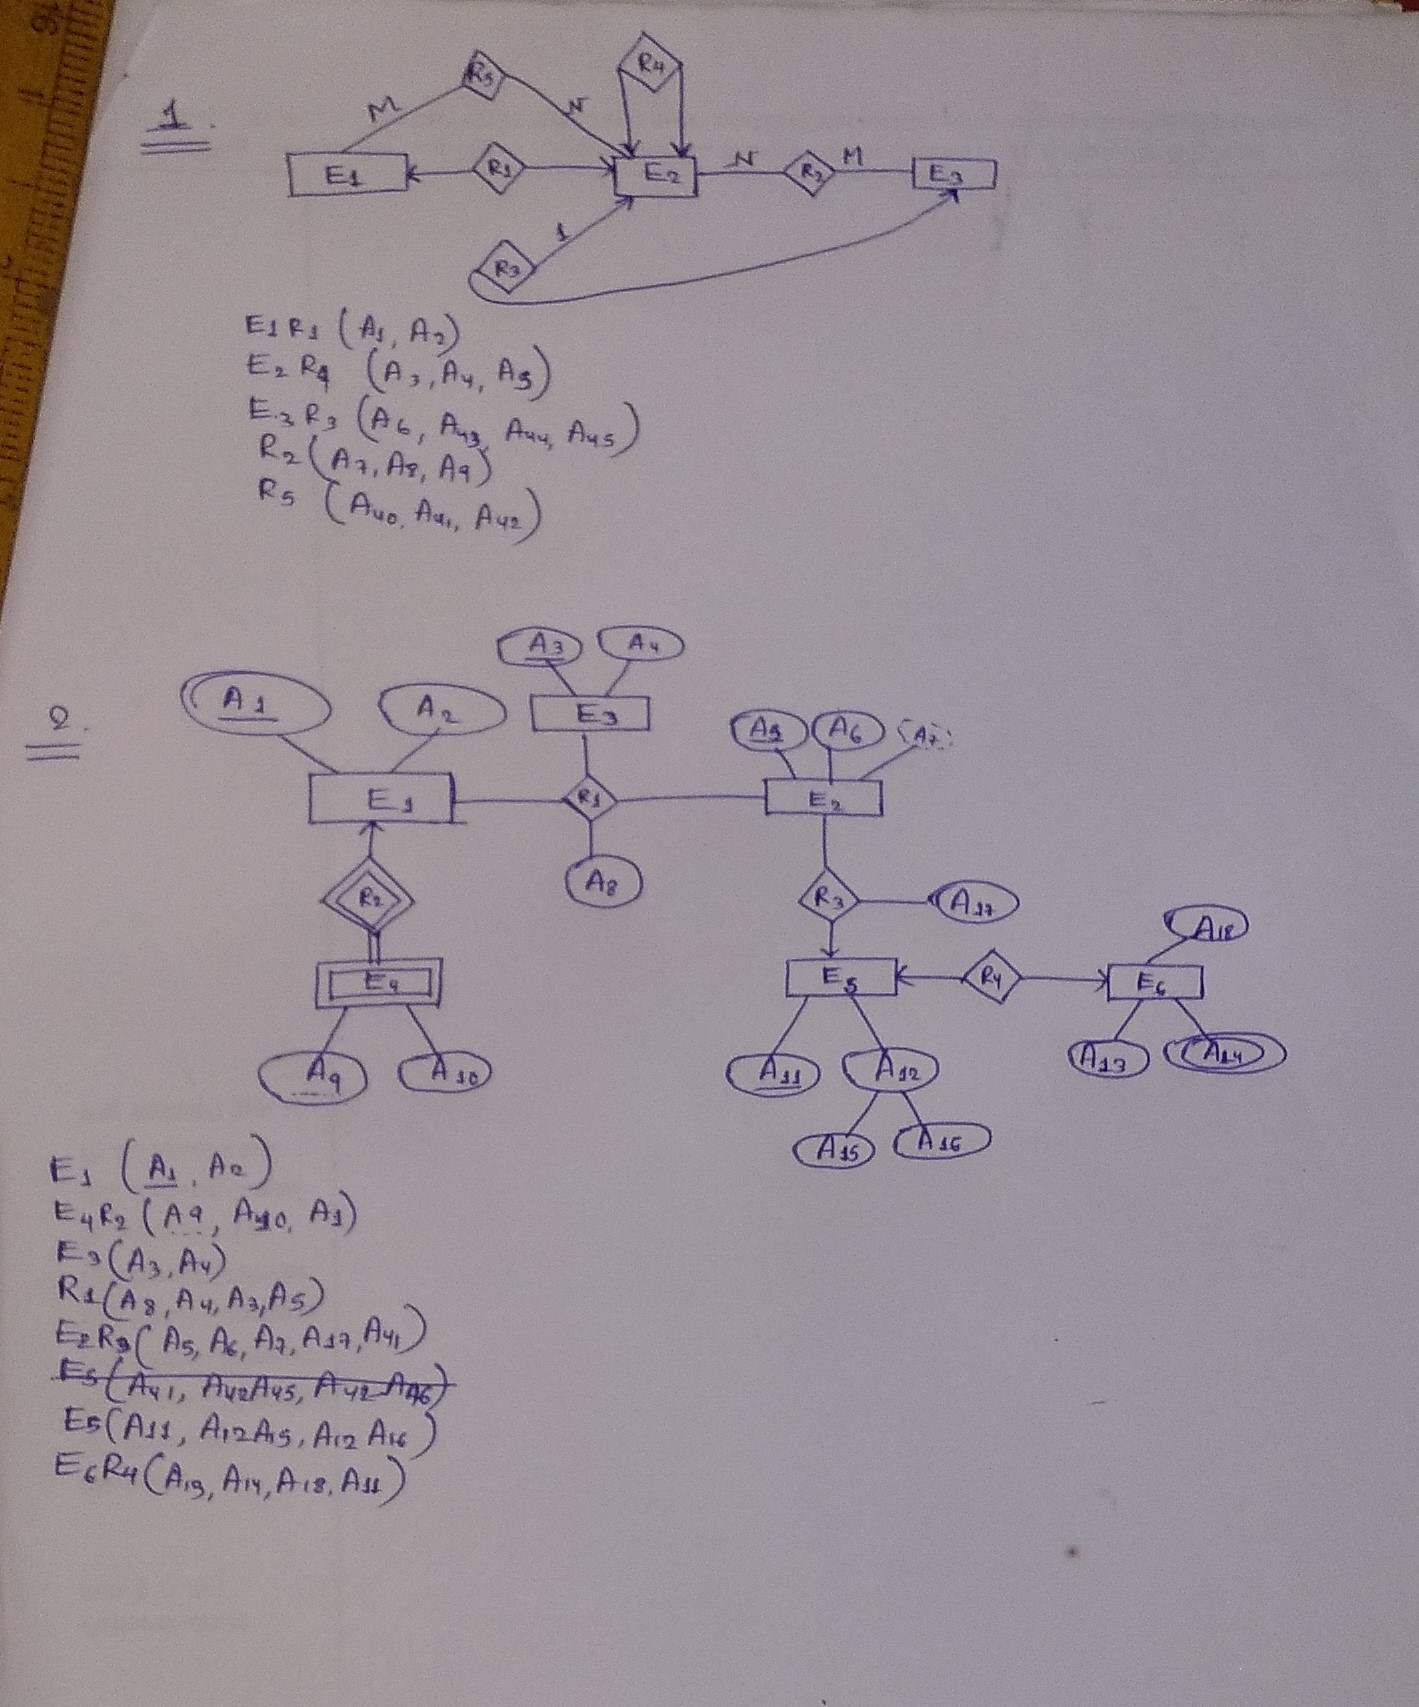 1.
M R5 N R4
E1 R1 E2 N R2 M E3
1
R3
E1 R1 (A1, A2)
E2 R4 (A3, A4, A5)
E3 R3 (A6, A43, A44, A45)
R2 (A7, A8, A9)
R5 (A40, A41, A42)
2.
A3 A4
A1 A2 E3 A5 A6 A7
E1 R1 E2
A8
R2 R3 A17
A18
E4 E5 R4 E6
A9 A10 A11 A12 A13 A14
A15 A16
E1 (A1, A2)
E4R2 (A9, A10, A1)
E3(A3, A4)
R1(A8, A4, A3, A5)
E2R3( A5, A6, A7, A17, A41)
E5(A41, A42A45, A42 A46)
E5(A11, A12A15, A12 A16)
E6R4(A13, A14, A18, A11)